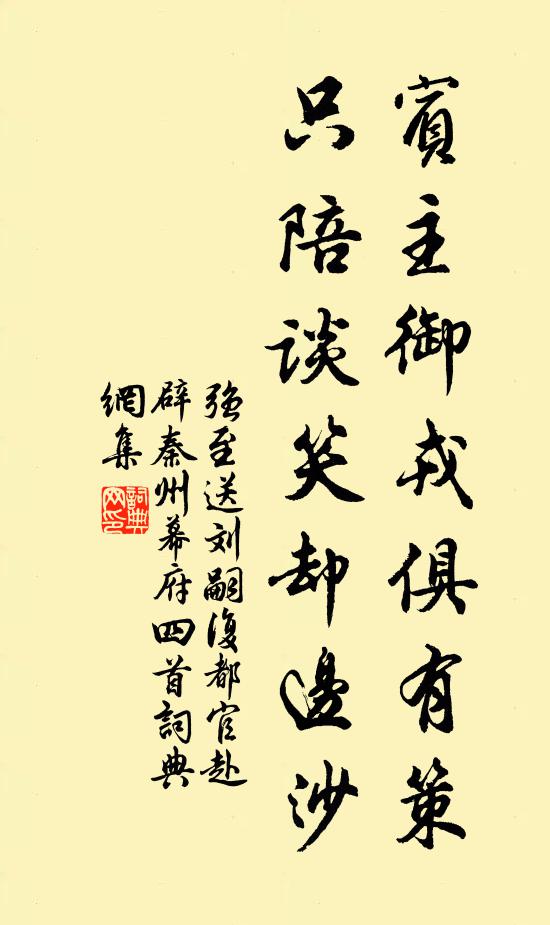 賓主御戎俱有策
只陪談笑却邊沙
强至送刘嗣復都官赴
辟秦州幕府四首詞典
網集
詞典
网印